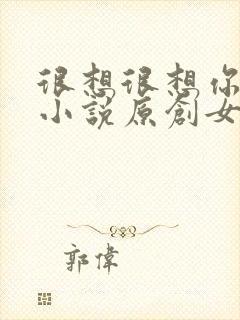 很想很想你
小説原創女
郭偉